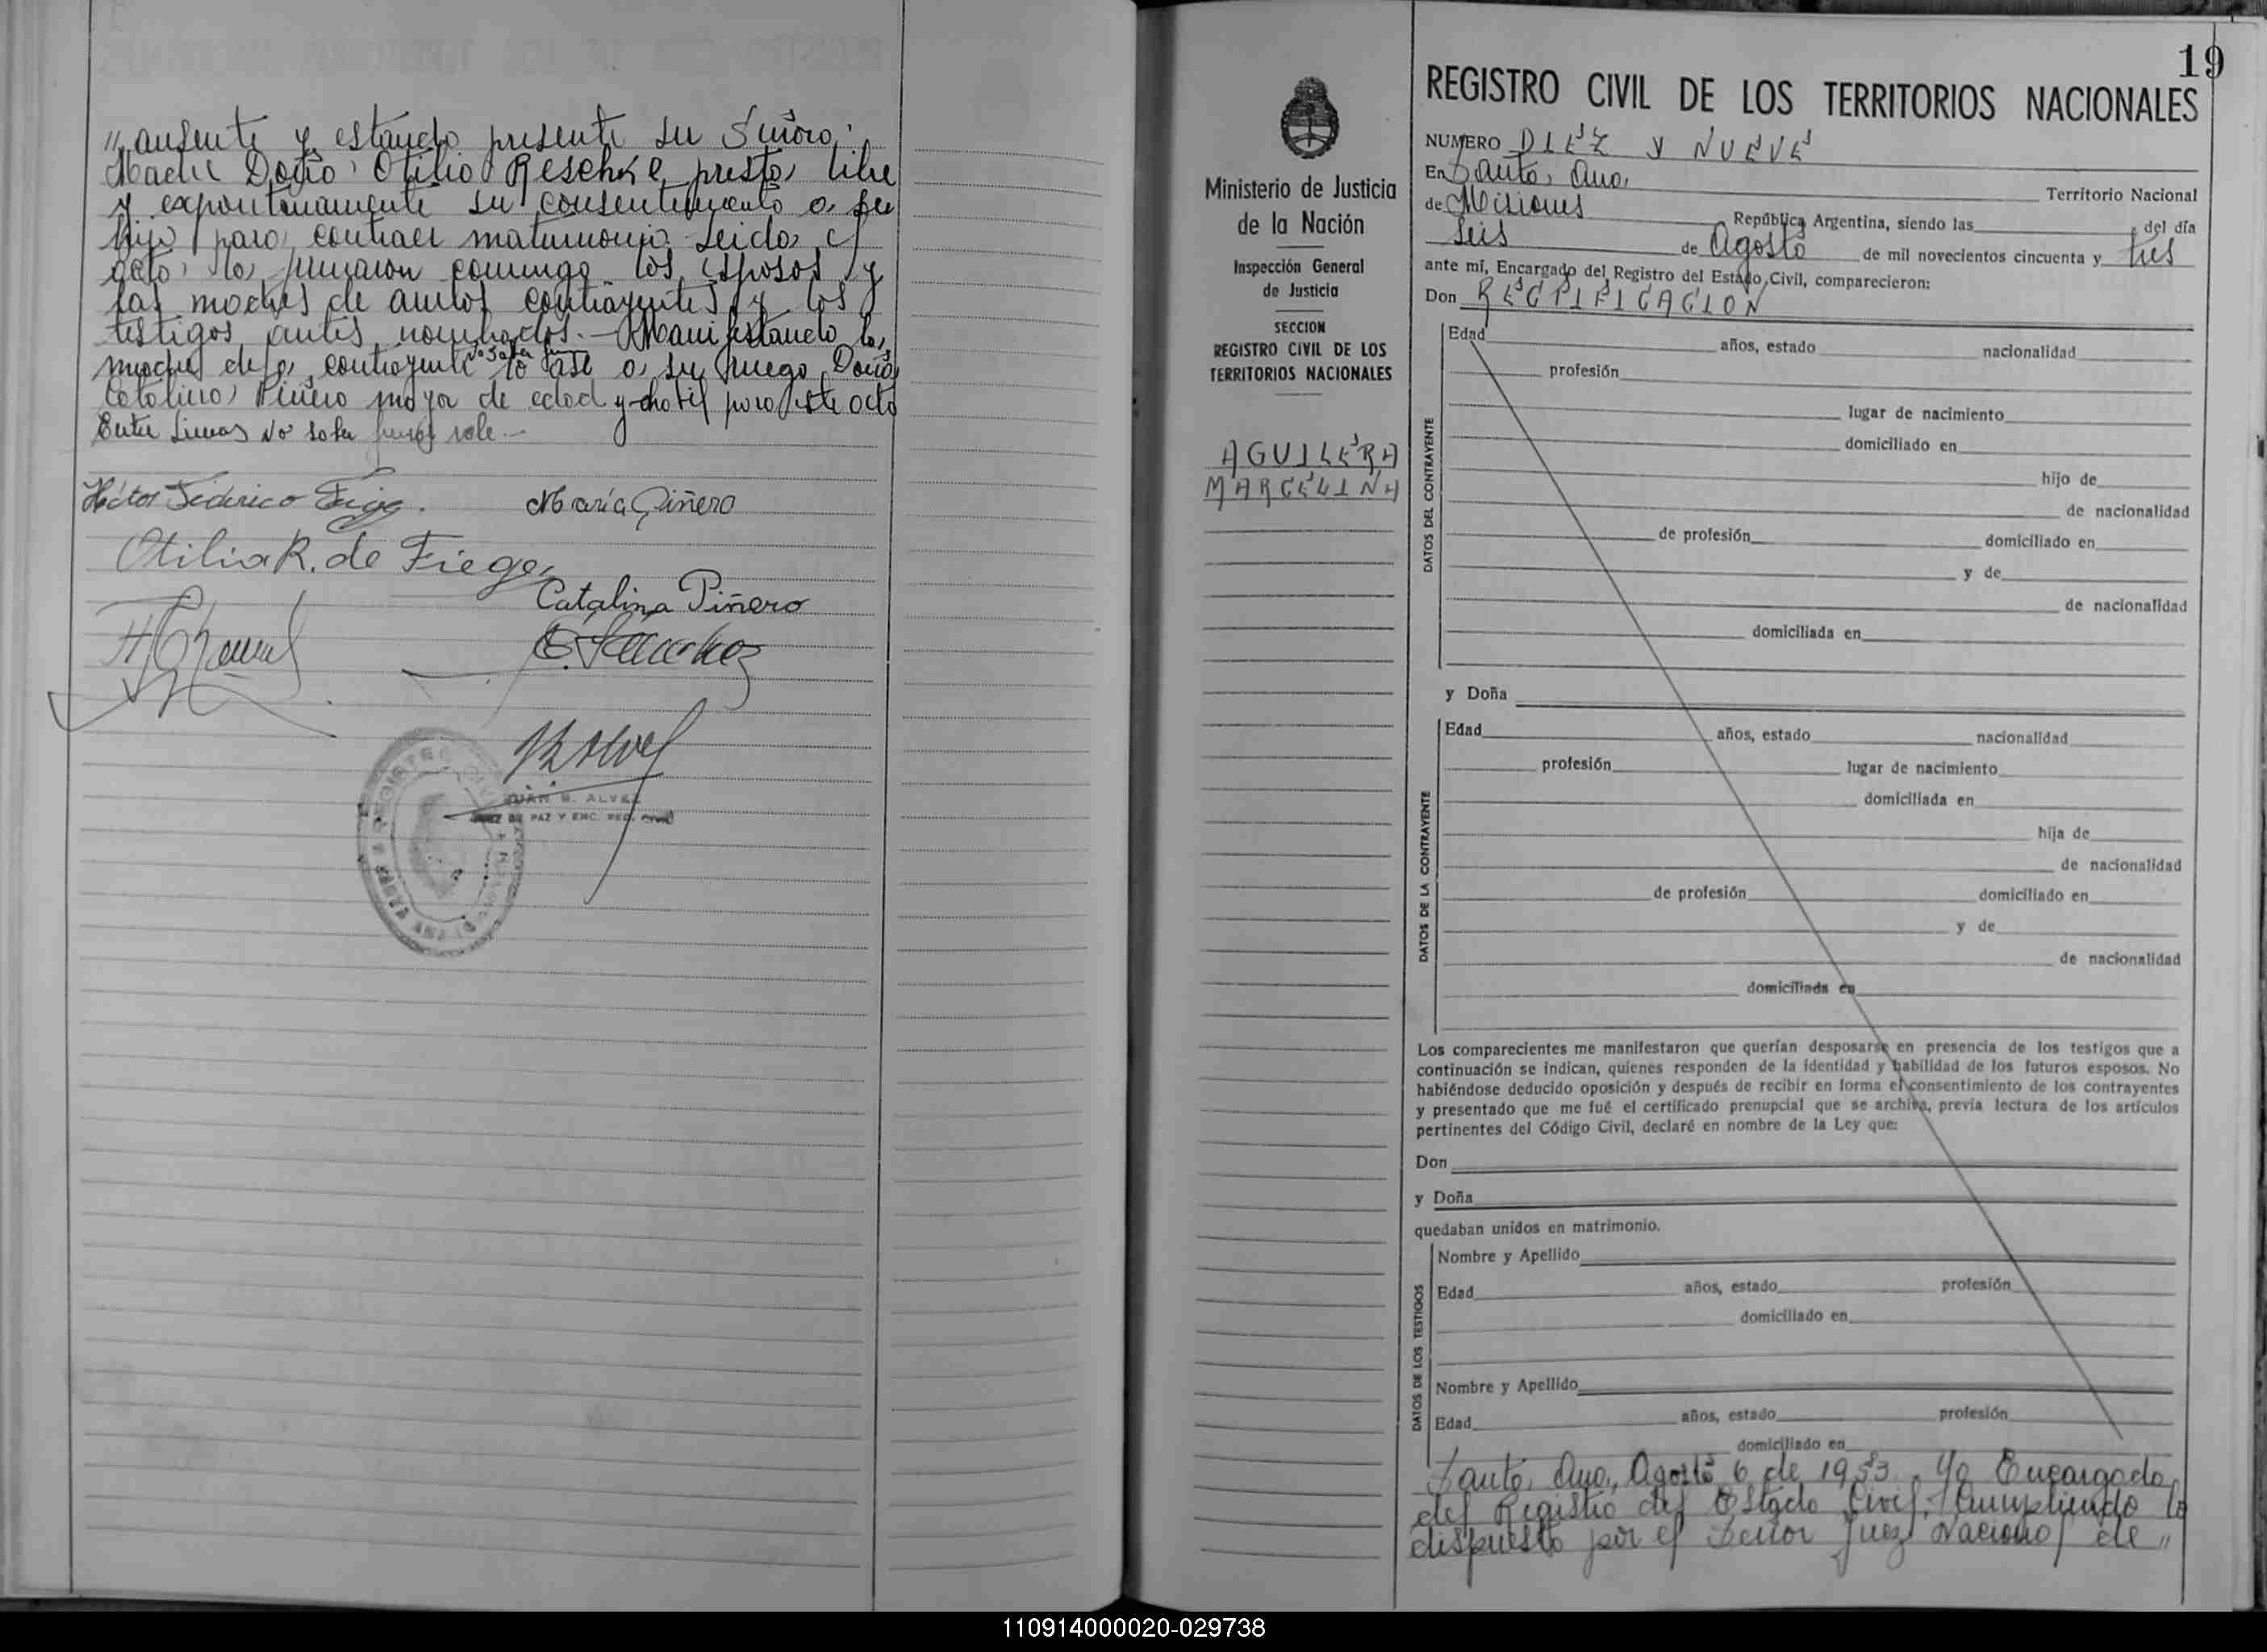 "ausente y estando presente su Señora
Madre Doña Otilia Reschke presta libre
y expontaneamente su consentimiento a su
hijo para contraer matrimonio. Leida el
acta, la firmaron conmigo los esposos y
las madres de ambos contrayentes y los
testigos antes nombrados.- Manifestando la
madre de la contrayente no saber firmar lo hase a su ruego Doña
Catalina Piñero mayor de edad y habil para este acto
Entre Lineas No saber firmar vale.-
Héctor Federico Fiege.
María Piñero
Otilia R. de Fiege
Catalina Piñero
JUAN B. ALVEZ
JUEZ DE PAZ Y ENC. REG. CIVIL
SANTA ANA
19
Ministerio de Justicia
de la Nación
Inspección General
de Justicia
SECCION
REGISTRO CIVIL DE LOS
TERRITORIOS NACIONALES
AGUILERA
MARCELINA
REGISTRO CIVIL DE LOS TERRITORIOS NACIONALES
NUMERO DIEZ Y NUEVE
En Santa Ana, Territorio Nacional
de Misiones República Argentina, siendo las del día
Seis de Agosto de mil novecientos cincuenta y tres
ante mí, Encargado del Registro del Estado Civil, comparecieron:
Don RECTIFICACION
DATOS DEL CONTRAYENTE
Edad años, estado nacionalidad
profesión
lugar de nacimiento
domiciliado en
hijo de
de nacionalidad
de profesión domiciliado en
y de
de nacionalidad
domiciliada en
y Doña
DATOS DE LA CONTRAYENTE
Edad años, estado nacionalidad
profesión lugar de nacimiento
domiciliada en
hija de
de nacionalidad
de profesión domiciliado en
y de
de nacionalidad
domiciliada en
Los comparecientes me manifestaron que querían desposarse en presencia de los testigos que a
continuación se indican, quienes responden de la identidad y habilidad de los futuros esposos. No
habiéndose deducido oposición y después de recibir en forma el consentimiento de los contrayentes
y presentado que me fué el certificado prenupcial que se archiva, previa lectura de los artículos
pertinentes del Código Civil, declaré en nombre de la Ley que:
Don
y Doña
quedaban unidos en matrimonio.
DATOS DE LOS TESTIGOS
Nombre y Apellido
Edad años, estado profesión
domiciliado en
Nombre y Apellido
Edad años, estado profesión
domiciliado en
Santa Ana, Agosto 6 de 1953. Yo Encargado
del Registro del Estado Civil, Cumpliendo lo
dispuesto por el Señor Juez Nacional de "
110914000020-029738